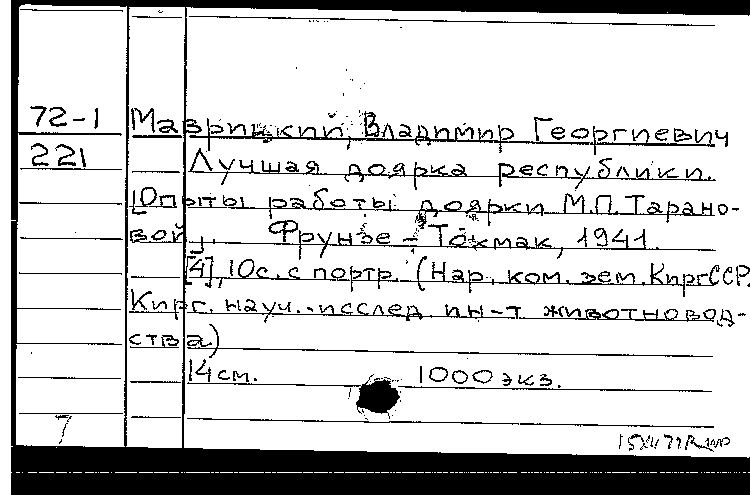 72-1 Маврицкий, Владимир Георгиевич
221 Лучшая доярка республики.
[Опыты работы доярки М.П. Тарано-
вой]. Фрунзе - Токмак, 1941.
[4], 10с. с портр. (Нар. ком. зем. КиргССР.
Кирг. науч.-исслед. ин-т животновод-
ства)
14 см. 1000 экз.
7